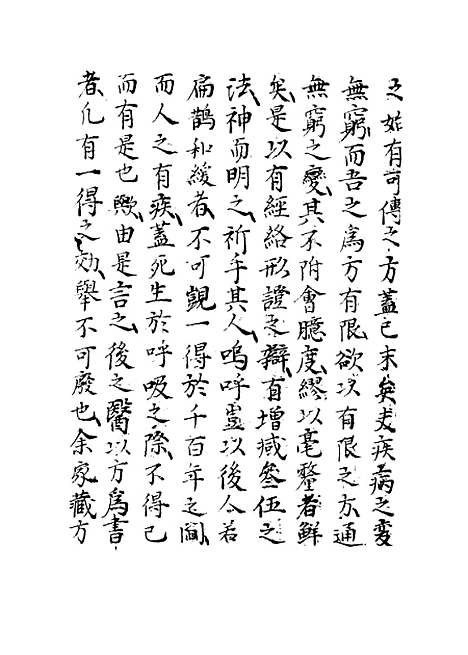 之始有可傳之方蓋已末矣夫疾病之變
無窮而吾之為方有限欲以有限之方通
無窮之變其不附會臆度繆以毫釐者鮮
矣是以有經絡形證之辯有增減叄伍之
法神而明之祈乎其人嗚呼靈以後今若
扁鵲和緩者不可覩一得於千百年之間
而人之有疾蓋死生於呼吸之際不得已
而有是也歟由是言之後之醫以方為書
者凡有一得之効舉不可廢也余家藏方